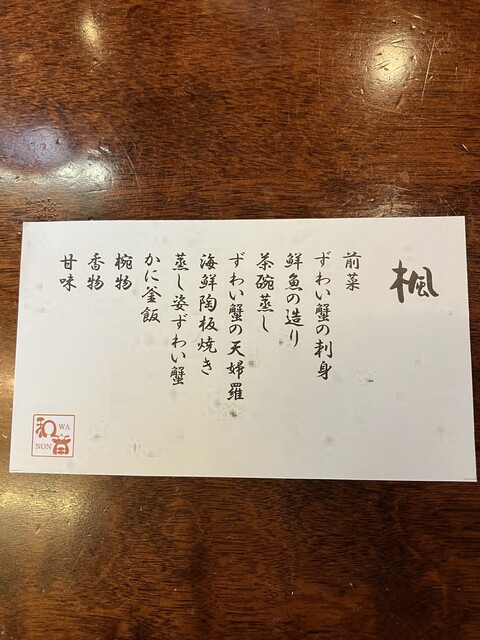 楓
前菜
ずわい蟹の刺身
鮮魚の造り
茶碗蒸し
ずわい蟹の天婦羅
海鮮陶板焼き
蒸し姿ずわい蟹
かに釜飯
椀物
香物
甘味
和音
WA
NON